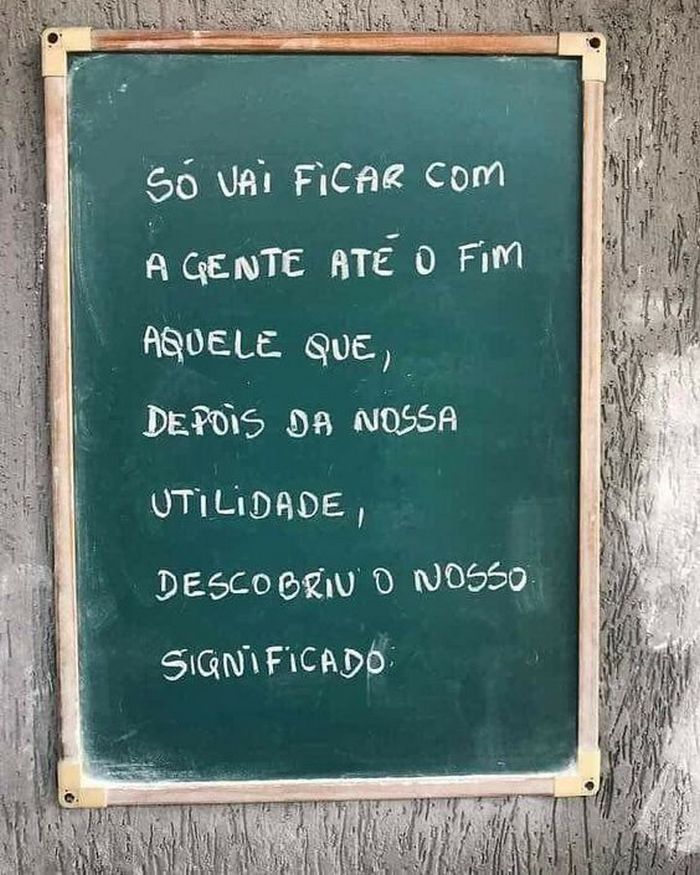 SÓ VAI FICAR COM
A GENTE ATÉ O FIM
AQUELE QUE,
DEPOIS DA NOSSA
UTILIDADE,
DESCOBRIU O NOSSO
SIGNIFICADO.